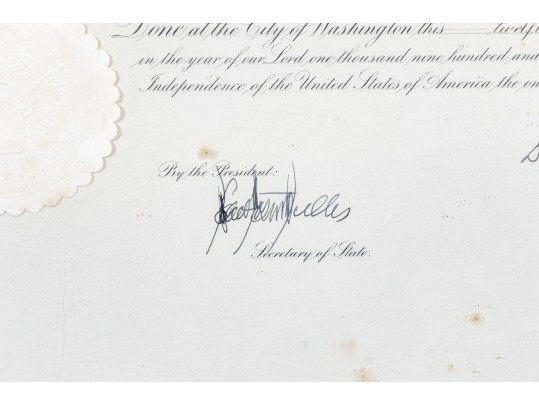 Done at the City of Washington this
in the year of our Lord one thousand, nine hundred and
Independence of the United States of America the on
By the President:
John Foster Dulles
Secretary of State.